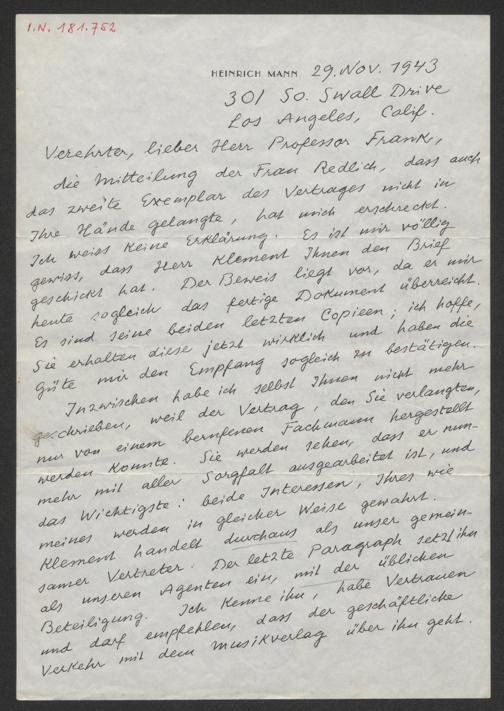 I.N. 181.752
HEINRICH MANN 29. Nov. 1943
301 So. Swall Drive
Los Angeles, Calif.
Verehrter, lieber Herr Professor Frank,
die Mitteilung der Frau Redlich, dass auch
das zweite Exemplar des Vertrages nicht in
Ihre Hände gelangte, hat mich erschreckt.
Ich weiss keine Erklärung. Es ist mir völlig
gewiss, dass Herr Klement Ihnen den Brief
geschickt hat. Der Beweis liegt vor, da er mir
heute sogleich das fertige Dokument überreicht.
Es sind seine beiden letzten Copieen; ich hoffe,
Sie erhalten diese jetzt wirklich und haben die
Güte mir den Empfang sogleich zu bestätigen.
Inzwischen habe ich selbst Ihnen nicht mehr
geschrieben, weil der Vertrag, den Sie verlangten,
nur von einem berufenen Fachmann hergestellt
werden konnte. Sie werden sehen, dass er nun-
mehr mit aller Sorgfalt ausgearbeitet ist, und
das Wichtigste: beide Interessen, Ihres wie
meines werden in gleicher Weise gewahrt.
Klement handelt durchaus als unser gemein-
samer Vertreter. Der letzte Paragraph setzt ihn
als unseren Agenten ein, mit der üblichen
Beteiligung. Ich kenne ihn, habe Vertrauen
und darf empfehlen, dass der geschäftliche
Verkehr mit dem Musikverlag über ihn geht.